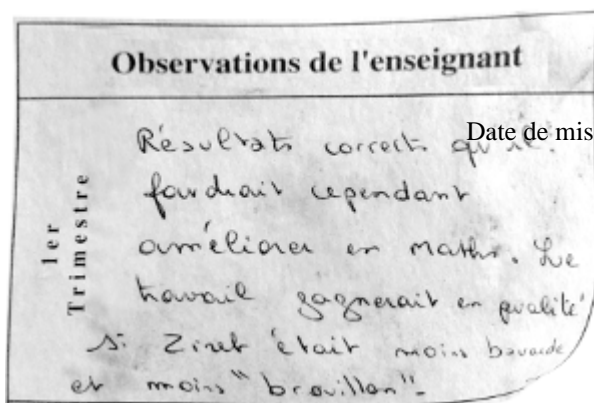 Observations de l'enseignant
1er
Trimestre
Résultats corrects qu'il
Date de mis
faudrait cependant
améliorer en maths. Le
travail gagnerait en qualité
si Ziret était moins bavarde
et moins "brouillon".